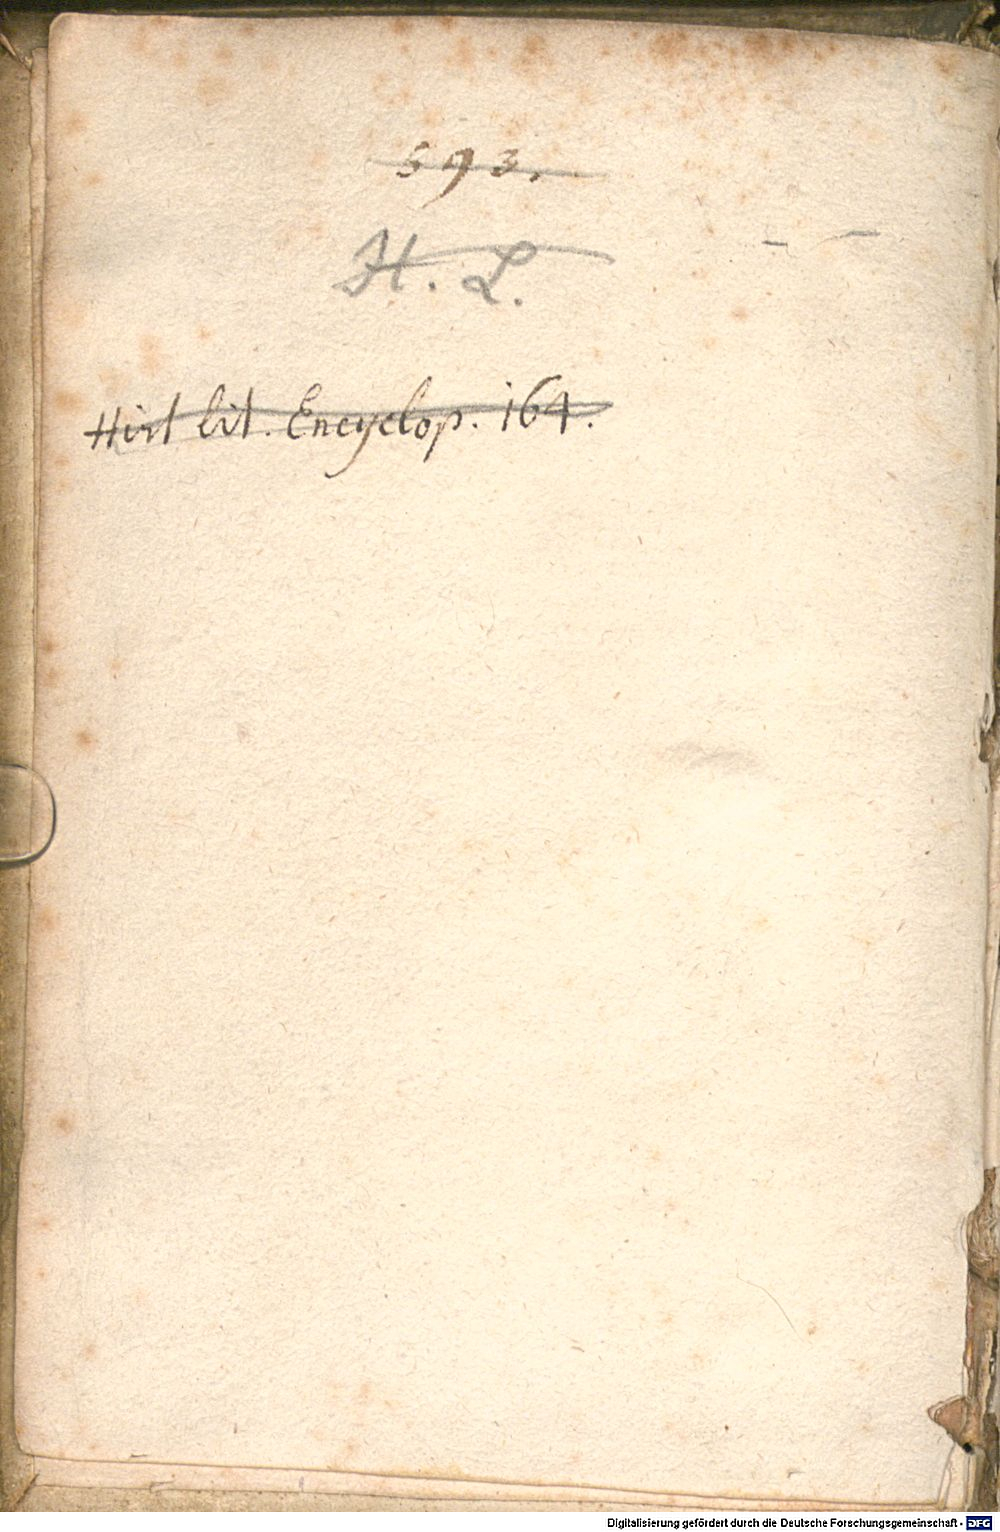 593.
H. L.
Hist lit. Encyclop. 164.
Digitalisierung gefördert durch die Deutsche Forschungsgemeinschaft - DFG